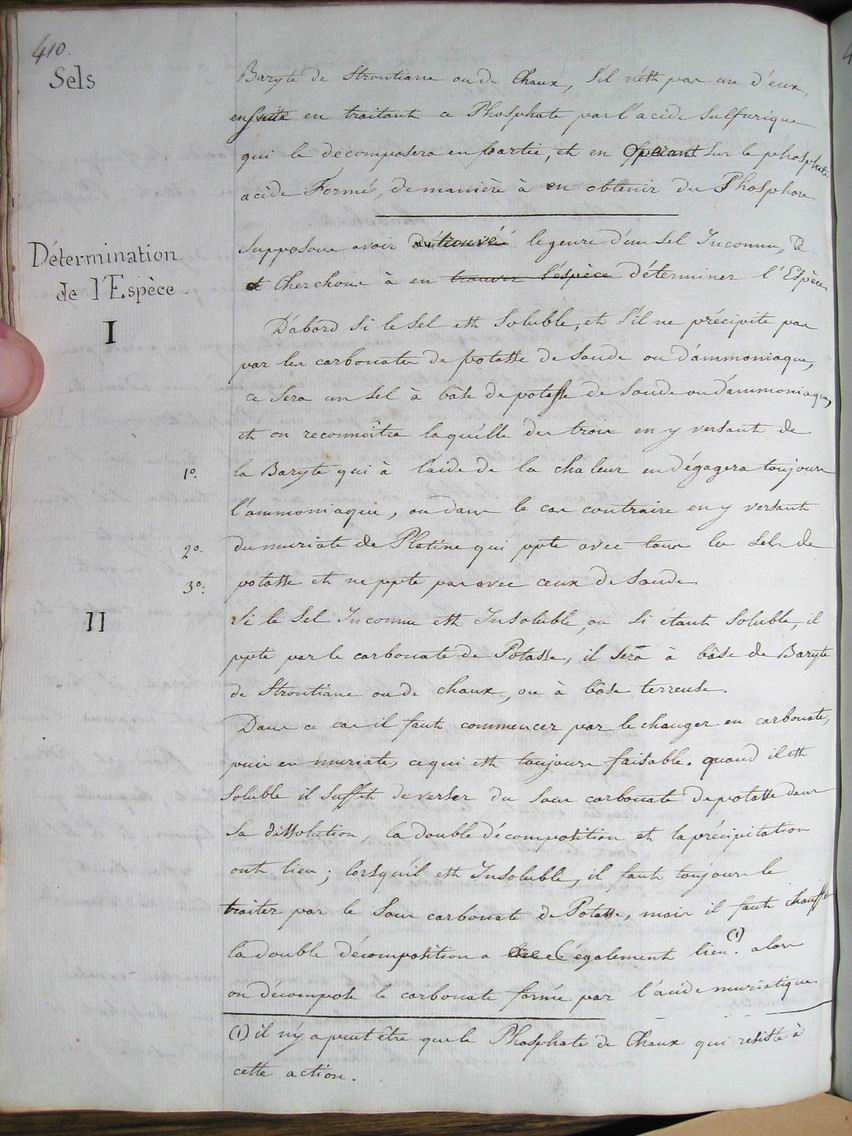 410.
Sels
Baryte de Strontiane ou de Chaux, S'il n'est pas un d'eux,
ensuite en traitant ce Phosphate par l'acide Sulfurique
qui le decomposera en partie, et en opérant Sur le phosphate
acide Formé, de manière à en obtenir du Phosphore
Détermination
de l'Espèce.
I
Supposons avoir trouvé le genre d'un Sel Inconnu,
et Cherchons à en trouver l'éspèce déterminer l'Espèce
D'abord Si le Sel est Soluble, et S'il ne précipite pas
par les carbonates de potasse de Soude ou d'ammoniaque,
ce Sera un Sel à bâse de potasse de Soude ou d'ammoniaque,
et on reconnoîtra laquélle des trois en y versant de
1º. la Baryte qui à l'aide de la chaleur en dégagera toujours
l'ammoniaque, ou dans le cas contraire en y versant
2º. du muriate de Platine qui ppte avec tous les Sels de
3º. potasse et ne ppte pas avec ceux de Soude.
II
Si le Sel Inconnu est Insoluble, ou Si étant Soluble, il
ppte par le carbonate de Potasse, il Sera à bâse de Baryte
de Strontiane ou de chaux, ou à bâse terreuse.
Dans ce cas il faut commencer par le changer en carbonate,
puis en muriate, ce qui est toujours faisable. quand il est
Soluble il Suffit de verser du Sous carbonate de potasse dans
Sa dissolution, la double décomposition et la précipitation
ont lieu ; lorsqu'il est Insoluble, il faut toujours le
traiter par le Sous carbonate de Potasse, mais il faut chauffer
la double décomposition a également lieu (1). alors
on décompose le carbonate formé par l'acide muriatique.
(1) il n'y a peut être que le Phosphate de Chaux qui résiste à
cette action.